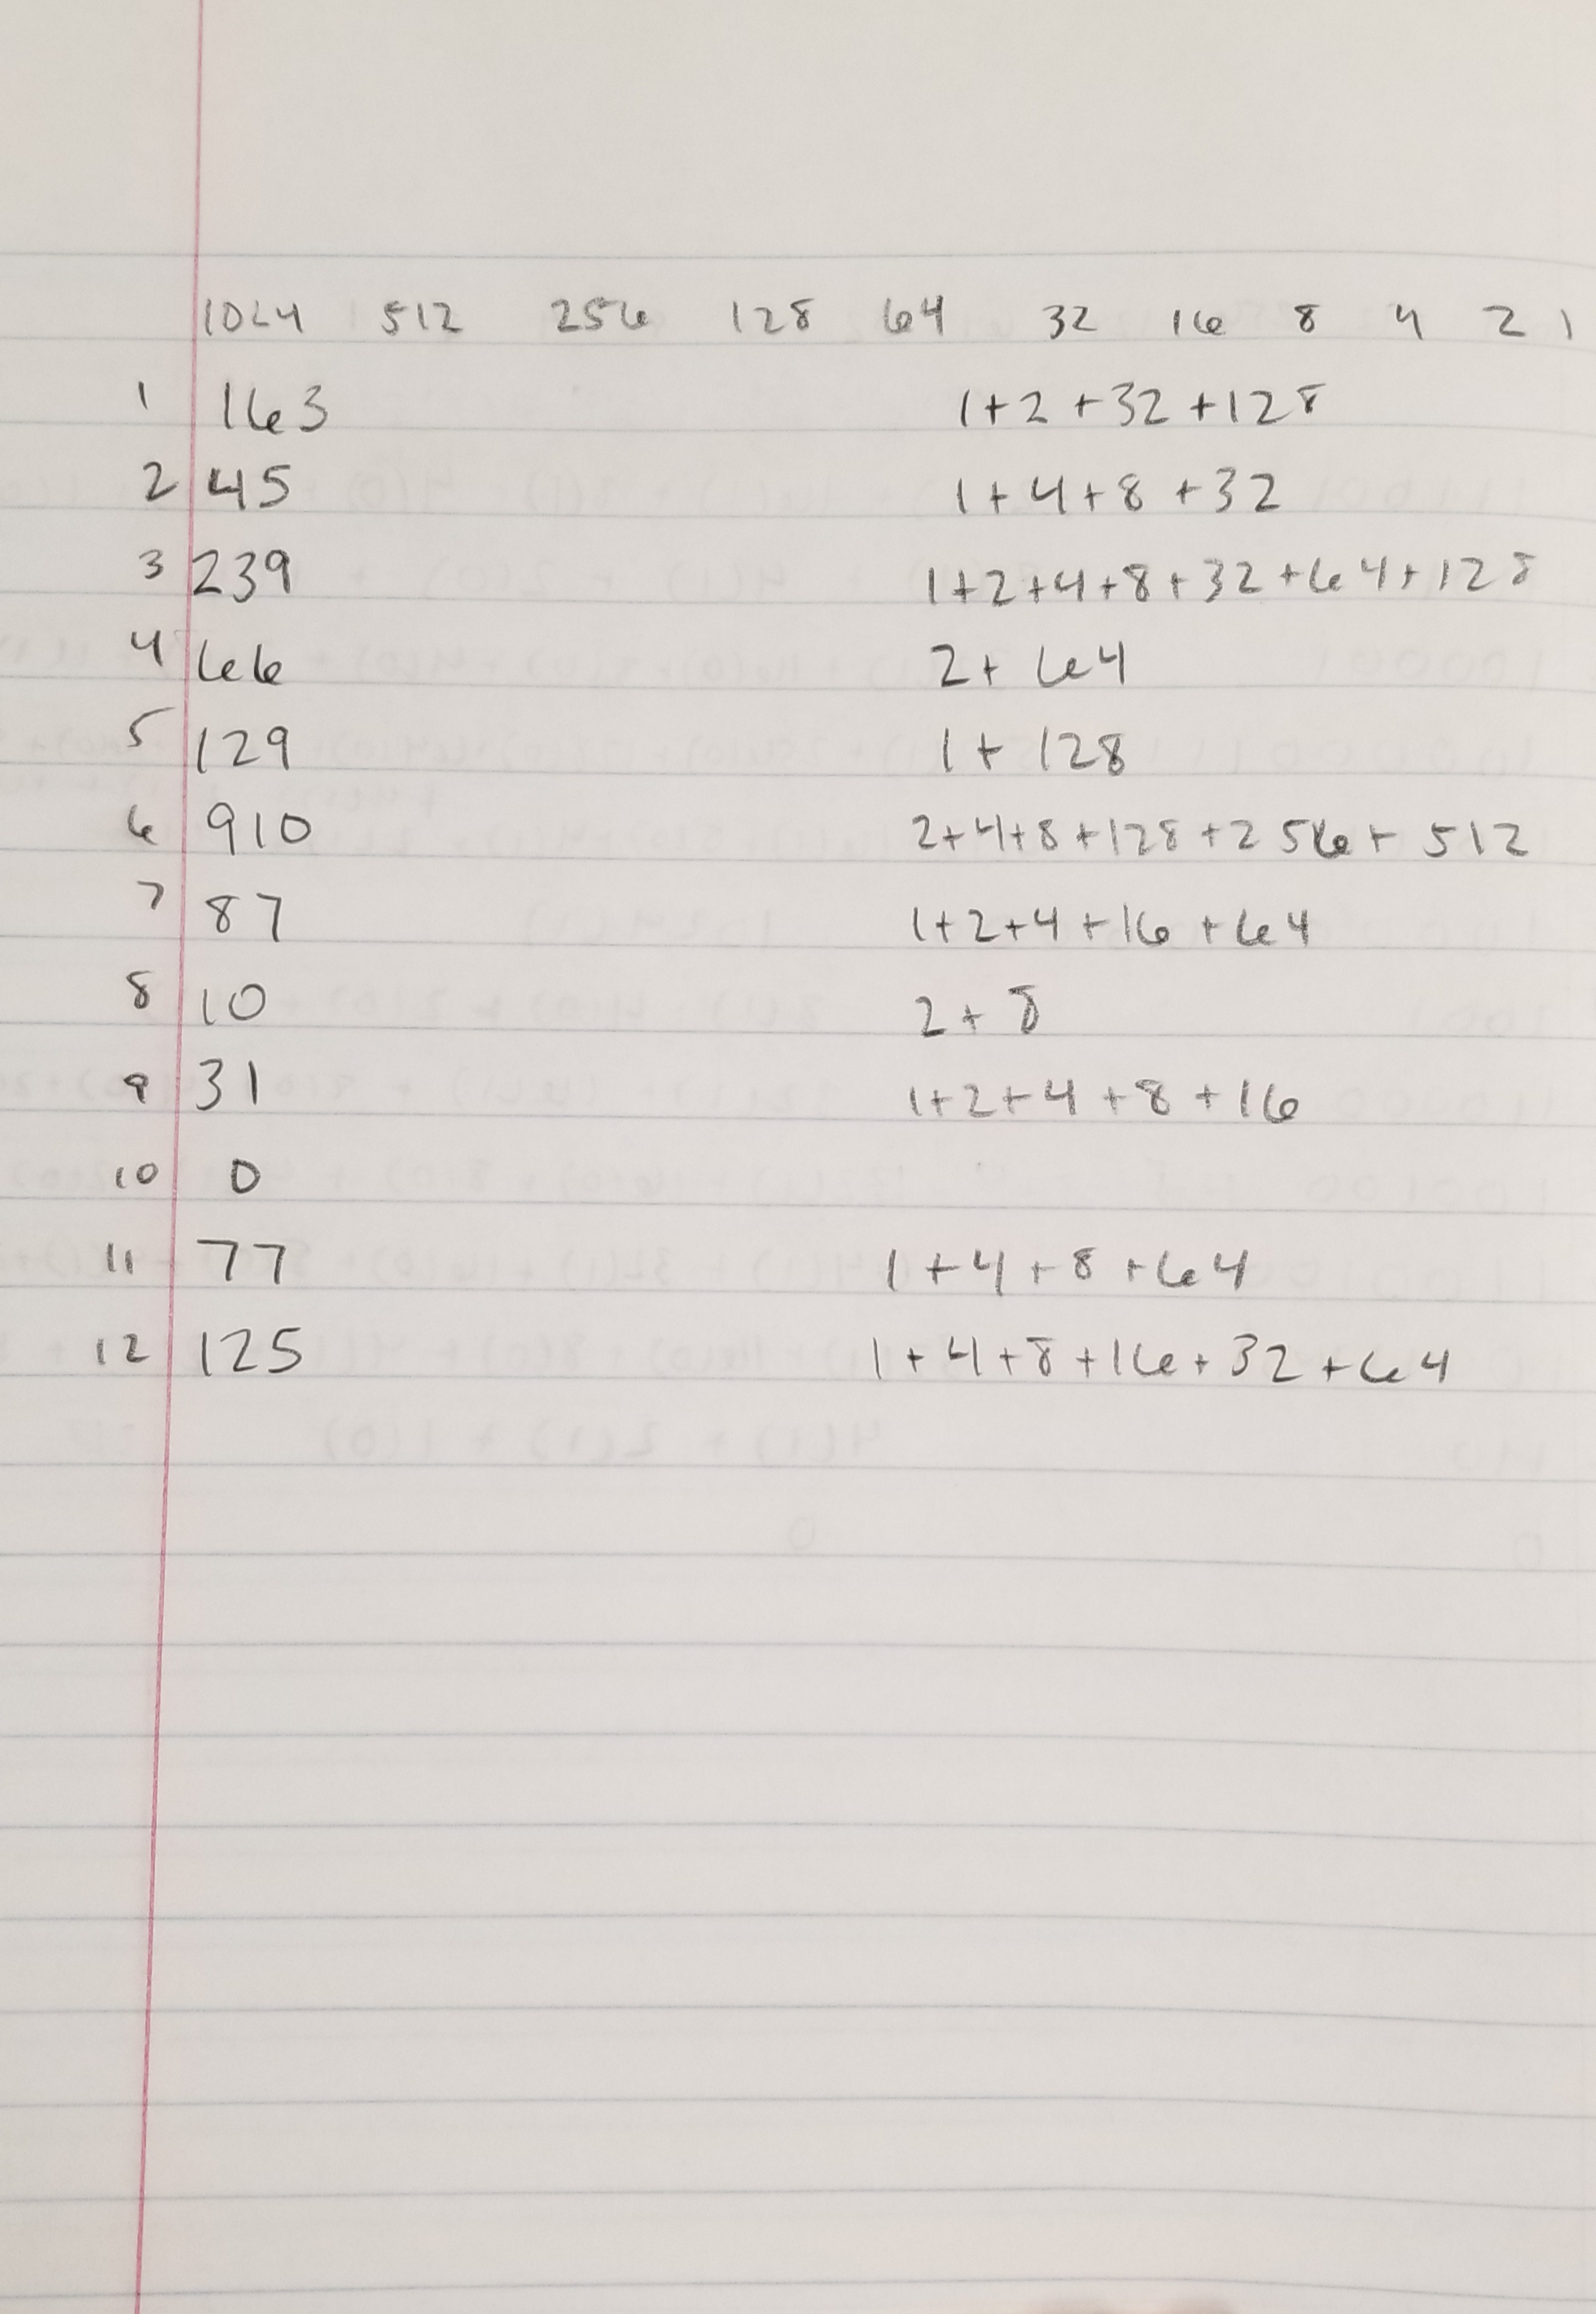 1024 512 256 128 64 32 16 8 4 2 1
1 163 1+2+32+128
2 45 1+4+8+32
3 239 1+2+4+8+32+64+128
4 66 2+64
5 129 1+128
6 910 2+4+8+128+256+512
7 87 1+2+4+16+64
8 10 2+8
9 31 1+2+4+8+16
10 0
11 77 1+4+8+64
12 125 1+4+8+16+32+64